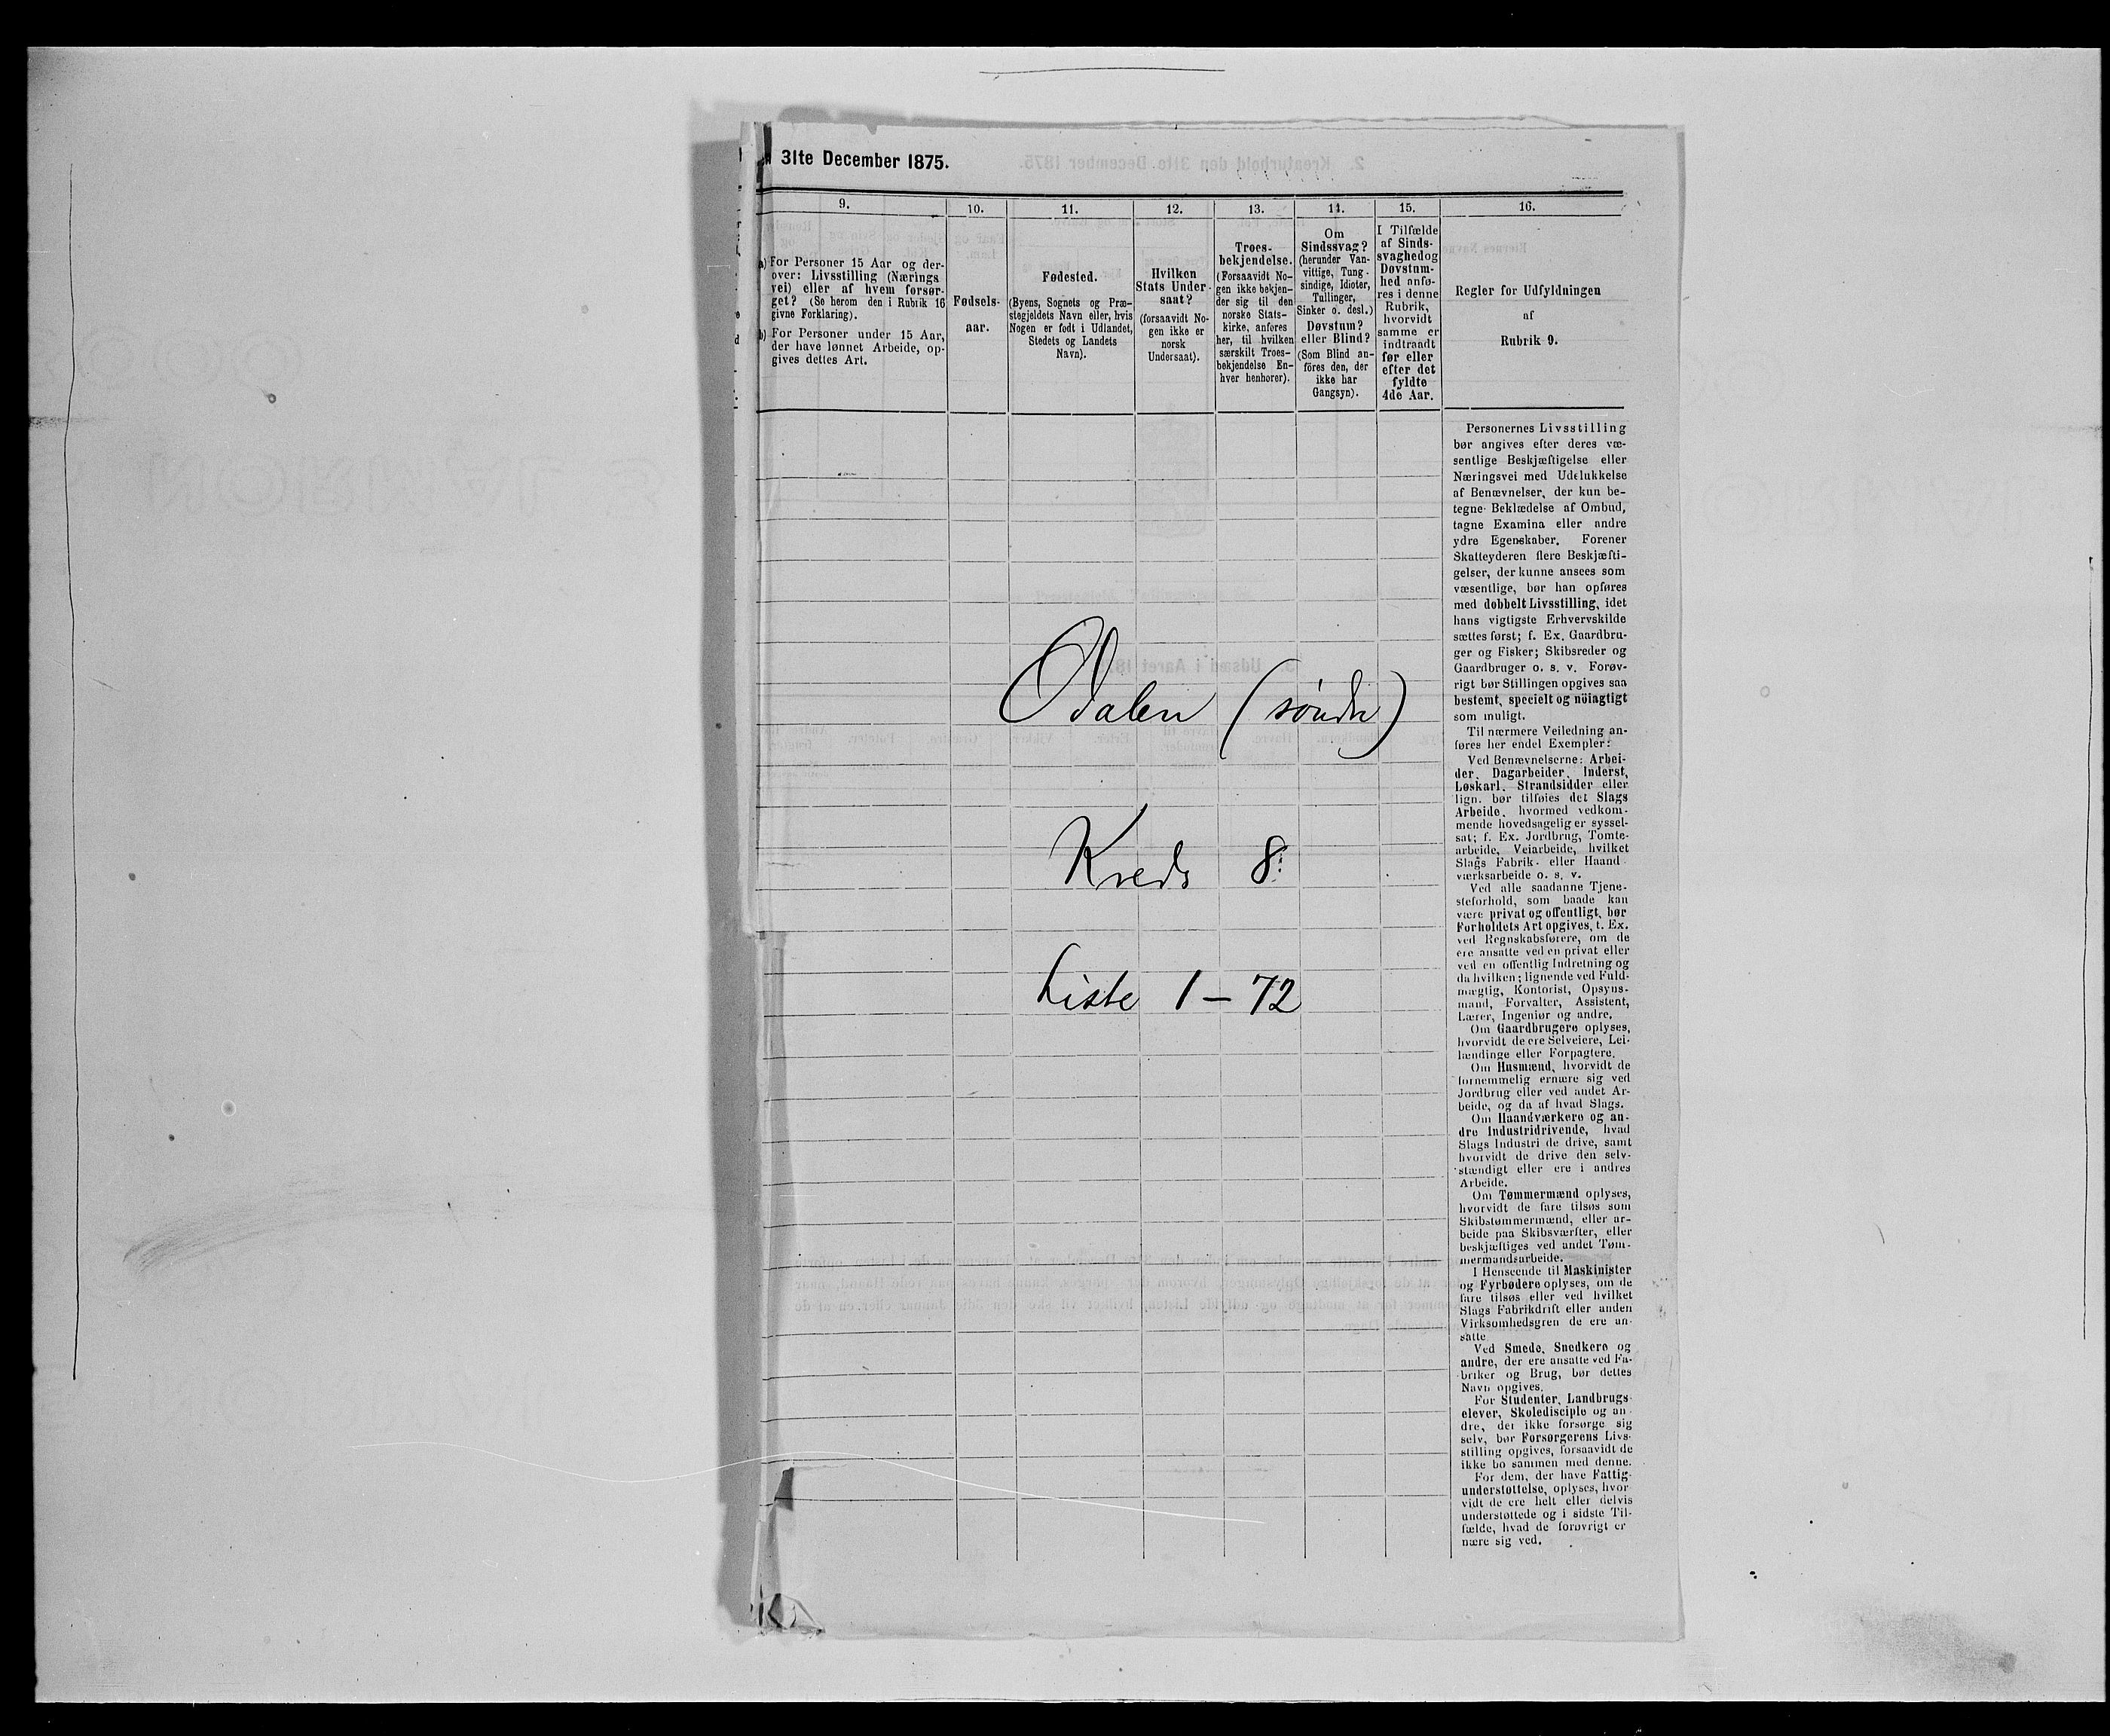 31te December 1875.
9.
a) For Personer 15 Aar og der-
over: Livsstilling (Nærings
vei) eller af hvem forsør-
get? (Se herom den i Rubrik 16
givne Forklaring).
b) For Personer under 15 Aar,
der have lønnet Arbeide, op-
gives dettes Art.
10.
Fødsels-
aar.
11.
Fødested.
(Byens, Sognets og Præ-
stegjeldets Navn eller, hvis
Nogen er født i Udlandet,
Stedets og Landets
Navn).
12.
Hvilken
Stats Under-
saat?
(forsaavidt No-
gen ikke er
norsk
Undersaat).
13.
Troes-
bekjendelse.
(Forsaavidt No-
gen ikke bekjen-
der sig til den
norske Stats-
kirke, anføres
her, til hvilken
særskilt Troes-
bekjendelse En-
hver henhører).
14.
Om
Sindssvag?
(herunder Van-
vittige, Tung-
sindige, Idioter,
Tullinger,
Sinker o. desl.)
Døvstum?
eller Blind?
(Som Blind an-
føres den, der
ikke har
Gangsyn).
15.
I Tilfælde
af Sinds-
svaghed og
Døvstum-
hed anfø-
res i denne
Rubrik,
hvorvidt
samme er
indtraadt
før eller
efter det
fyldte
4de Aar.
16.
Regler for Udfyldningen
af
Rubrik 9.
Personernes Livsstilling
bør angives efter deres væ-
sentlige Beskjæftigelse eller
Næringsvei med Udelukkelse
af Benævnelser, der kun be-
tegne Beklædelse af Ombud,
tagne Examina eller andre
ydre Egenskaber. Forener
Skatteyderen flere Beskjæfti-
gelser, der kunne ansees som
væsentlige, bør han opføres
med dobbelt Livsstilling, idet
hans vigtigste Erhvervskilde
sættes først; f. Ex. Gaardbru-
ger og Fisker; Skibsreder og
Gaardbruger o. s. v. Forøv-
rigt bør Stillingen opgives saa
bestemt, specielt og nöiagtigt
som muligt.
Til nærmere Veiledning an-
føres her endel Exempler:
Ved Benævnelserne: Arbei-
der, Dagarbeider, Inderst,
Løskarl, Strandsidder eller
lign. bør tilføies det Slags
Arbeide, hvormed vedkom-
mende hovedsagelig er syssel-
sat; f. Ex. Jordbrug, Tomte-
arbeide, Veiarbeide, hvilket
Slags Fabrik- eller Haand-
værksarbeide o. s. v.
Ved alle saadanne Tjene-
steforhold, som baade kan
være privat og offentligt, bør
Forholdets Art opgives, t. Ex.
ved Regnskabsførere, om de
ere ansatte ved en privat eller
ved en offentlig Indretning og
da hvilken; lignende ved Fuld-
mægtig, Kontorist, Opsyns-
mand, Forvalter, Assistent,
Lærer, Ingeniør og andre.
Om Gaardbrugere oplyses,
hvorvidt de ere Selveiere, Lei-
lændinge eller Forpagtere.
Om Husmænd, hvorvidt de
fornemmelig ernære sig ved
Jordbrug eller ved andet Ar-
beide, og da af hvad Slags.
Om Haandværkere og an-
dre Industridrivende, hvad
Slags Industri de drive, samt
hvorvidt de drive den selv-
stændigt eller ere i andres
Arbeide.
Om Tømmermænd oplyses,
hvorvidt de fare tilsøs som
Skibstømmermænd, eller ar-
beide paa Skibsværfter, eller
beskjæftiges ved andet Tøm-
mermandsarbeide.
I Henseende til Maskinister
og Fyrbødere oplyses, om de
fare tilsøs eller ved hvilket
Slags Fabrikdrift eller anden
Virksomhedsgren de ere an-
satte
Ved Smede, Snedkere og
andre, der ere ansatte ved Fa-
briker og Brug, bør dettes
Navn opgives.
For Studenter, Landbrugs-
elever, Skoledisciple og an-
dre, der ikke forsørge sig
selv, bør Forsørgerens Livs-
stilling opgives, forsaavidt de
ikke bo sammen med denne.
For dem, der have Fattig-
understøttelse, oplyses, hvor-
vidt de ere helt eller delvis
understøttede og i sidste Til-
fælde, hvad de forøvrigt er
nære sig ved.
Odalen (söndre)
Kreds 8:
Liste 1 – 72